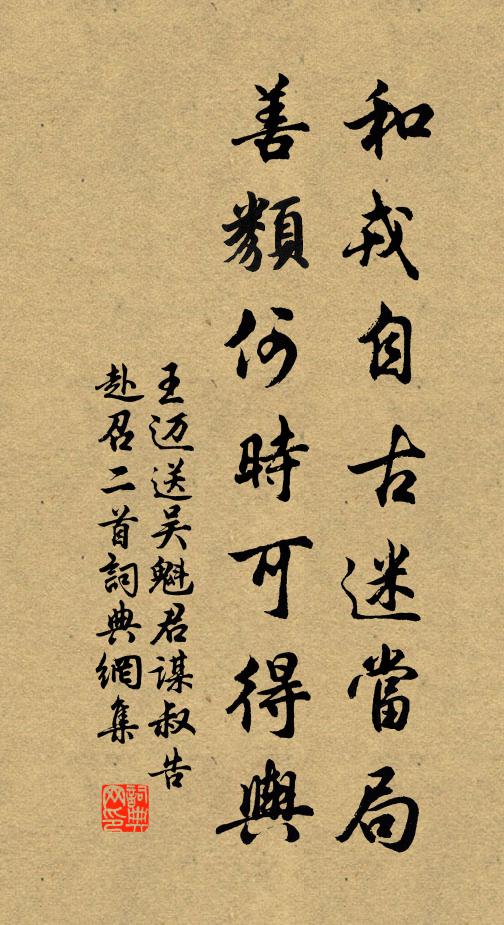 和戎自古迷當局
善類何時可得輿
王迈送吴魁君谋叔告
赴召二首詞典網集
詞典
网印